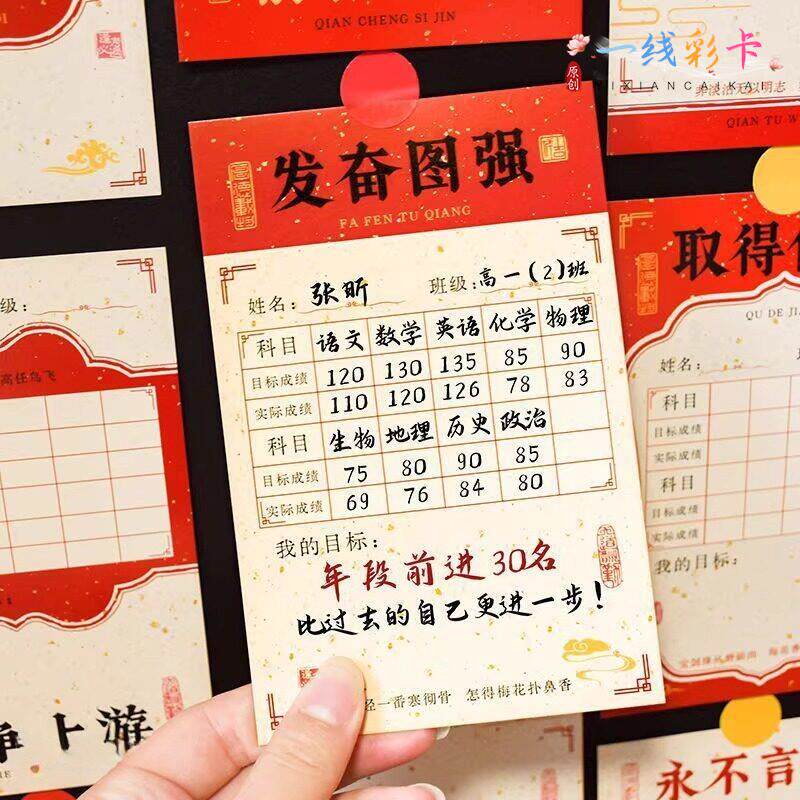 QIAN CHENG SI JIN
一线彩卡
原创
IXIANCAIKAI
非淡泊无以明志
QIAN TU W
发奋图强
FA FEN TU QIANG
姓名：张昕 班级：高一(2)班
科目 语文 数学 英语 化学 物理
目标成绩 120 130 135 85 90
实际成绩 110 120 126 78 83
科目 生物 地理 历史 政治
目标成绩 75 80 90 85
实际成绩 69 76 84 80
我的目标：
年段前进30名
比过去的自己更进一步！
一番寒彻骨 怎得梅花扑鼻香
级：
高任鸟飞
上游
取得
QU DE JI
姓名：
科目
目标成绩
实际成绩
科目
目标成绩
实际成绩
我的目标：
永不言